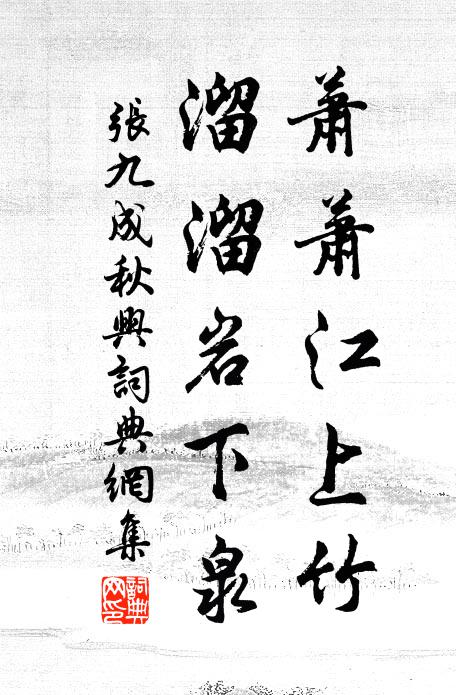 蕭蕭江上竹
溜溜岩下泉
張九成秋興詞典網集
詞典网印